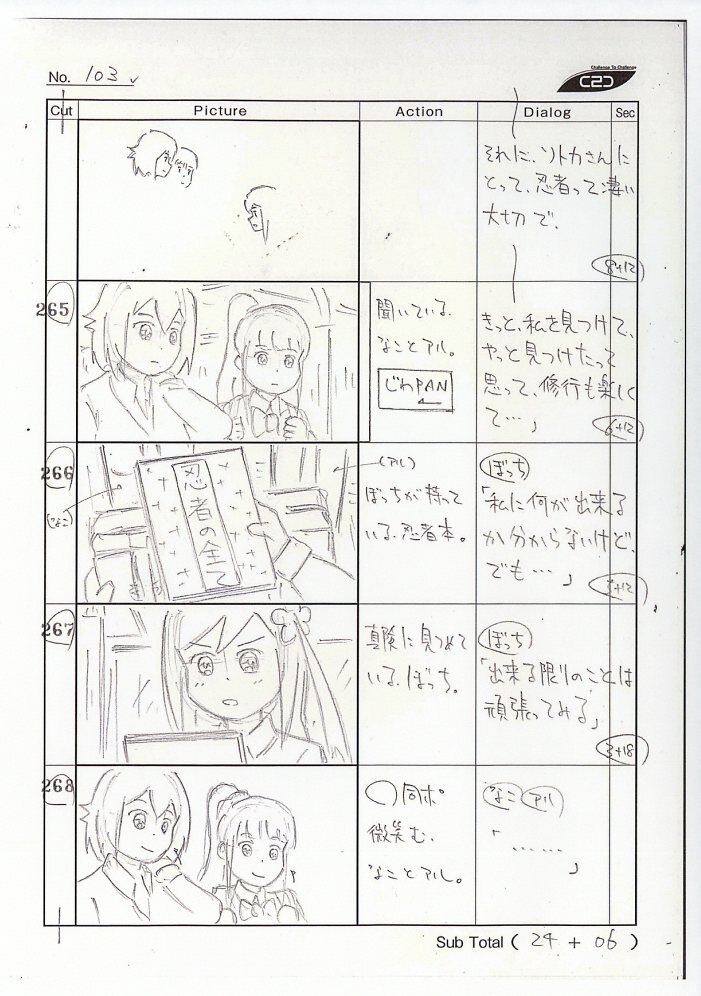 No. 103
Challenge To Challenge
C2C
Cut Picture Action Dialog Sec
それに、ソトカさんに
とって、忍者って凄い
大切で、
8+12
265
聞いている、
なことアル。
じわPAN
きっと、私を見つけて、
やっと見つけたって
思って、修行も楽しく
て…」
6+12
266
(なこ)
忍者の全て
(アル)
ぼっちが持って
いる、忍者本。
ぼっち
「私に何が出来る
か分からないけど、
でも…」
+12
267
真険に見つめて
いる、ぼっち。
ぼっち
「出来る限りのことは
頑張ってみる」
3+18
268
同ポ
微笑む、
なことアル。
なこ アル
「……
」
Sub Total ( 24 + 06 )